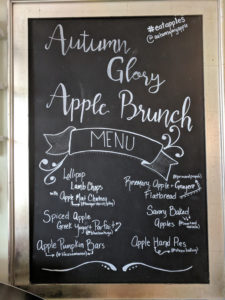 #eatapples
Autumn
Glory
Apple Brunch
MENU
Lollipop
Lamb Chops
with Apple Mint Chutney
Spiced Apple
Greek Yogurt Parfait
Apple Pumpkin Bars
Rosemary, Apple + Gruyere
Flatbread
Savory Baked
Apples
Apple Hand Pies